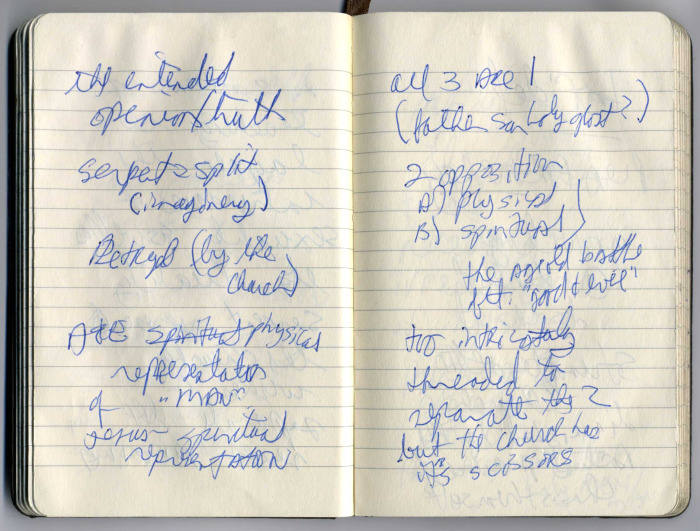 the intended
opening/truth
serpent = split
(imaginary)
Betrayl (by the
church)
A+E spiritual physical
representation
of "MAN"
Jesus - spiritual
representation
all 3 are 1
(father son holy ghost?)
2 opposition
A) physical
B) spiritual
the age old battle
btt. "good + evil"
too intricately
threaded to
separate the 2
but the church has
its scissors